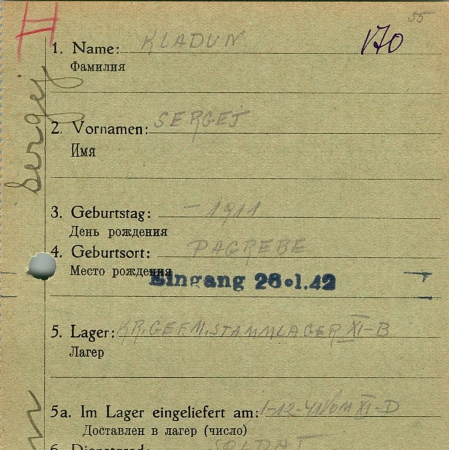 55
II
1. Name: KLADUN 170
Фамилия
Sergej
2. Vornamen: SERGEJ
Имя
3. Geburtstag: – 1911
День рождения
4. Geburtsort: PAGREBE
Место рождения
Eingang 26.1.42
5. Lager: KR.GEF.M.STAMMLAGER XI-B
Лагер
5a. Im Lager eingeliefert am: 1-12-41 Vom XI-D
Доставлен в лагер (число)
6. Dienstgrad: SOLDAT